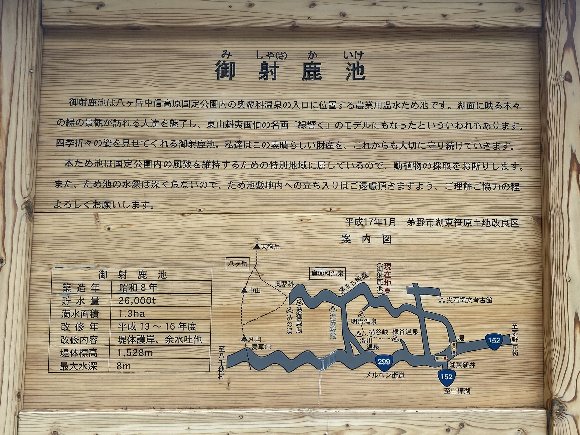 み しゃ か いけ
御射鹿池
御射鹿池は八ヶ岳中信高原国定公園内の奥蓼科温泉の入口に位置する農業用温水ため池です。湖面に映る木々
の緑の景観が訪れる人達を魅了し、東山魁夷画伯の名画「緑響く」のモデルにもなったといういわれもあります。
四季折々の姿を見せてくれる御射鹿池、私達はこの素晴らしい財産を、これからも大切に守り続けていきます。
本ため池は国定公園内の風致を維持するための特別地域に属しているので、動植物の採取をお断りします。
また、ため池の水深は深く危ないので、ため池敷地内への立ち入りはご遠慮頂きますよう、ご理解ご協力の程
よろしくお願いします。
平成17年1月 茅野市湖東笹原土地改良区
案内図
御射鹿池
築造年 昭和8年
貯水量 26,000t
満水面積 1.3ha
改修年 平成13～16年度
改修内容 堤体護岸、余水吐他
堤体標高 1,528m
最大水深 8m
八ヶ岳
現在地
御射鹿池
明治温泉
299
メルヘン街道
152
152